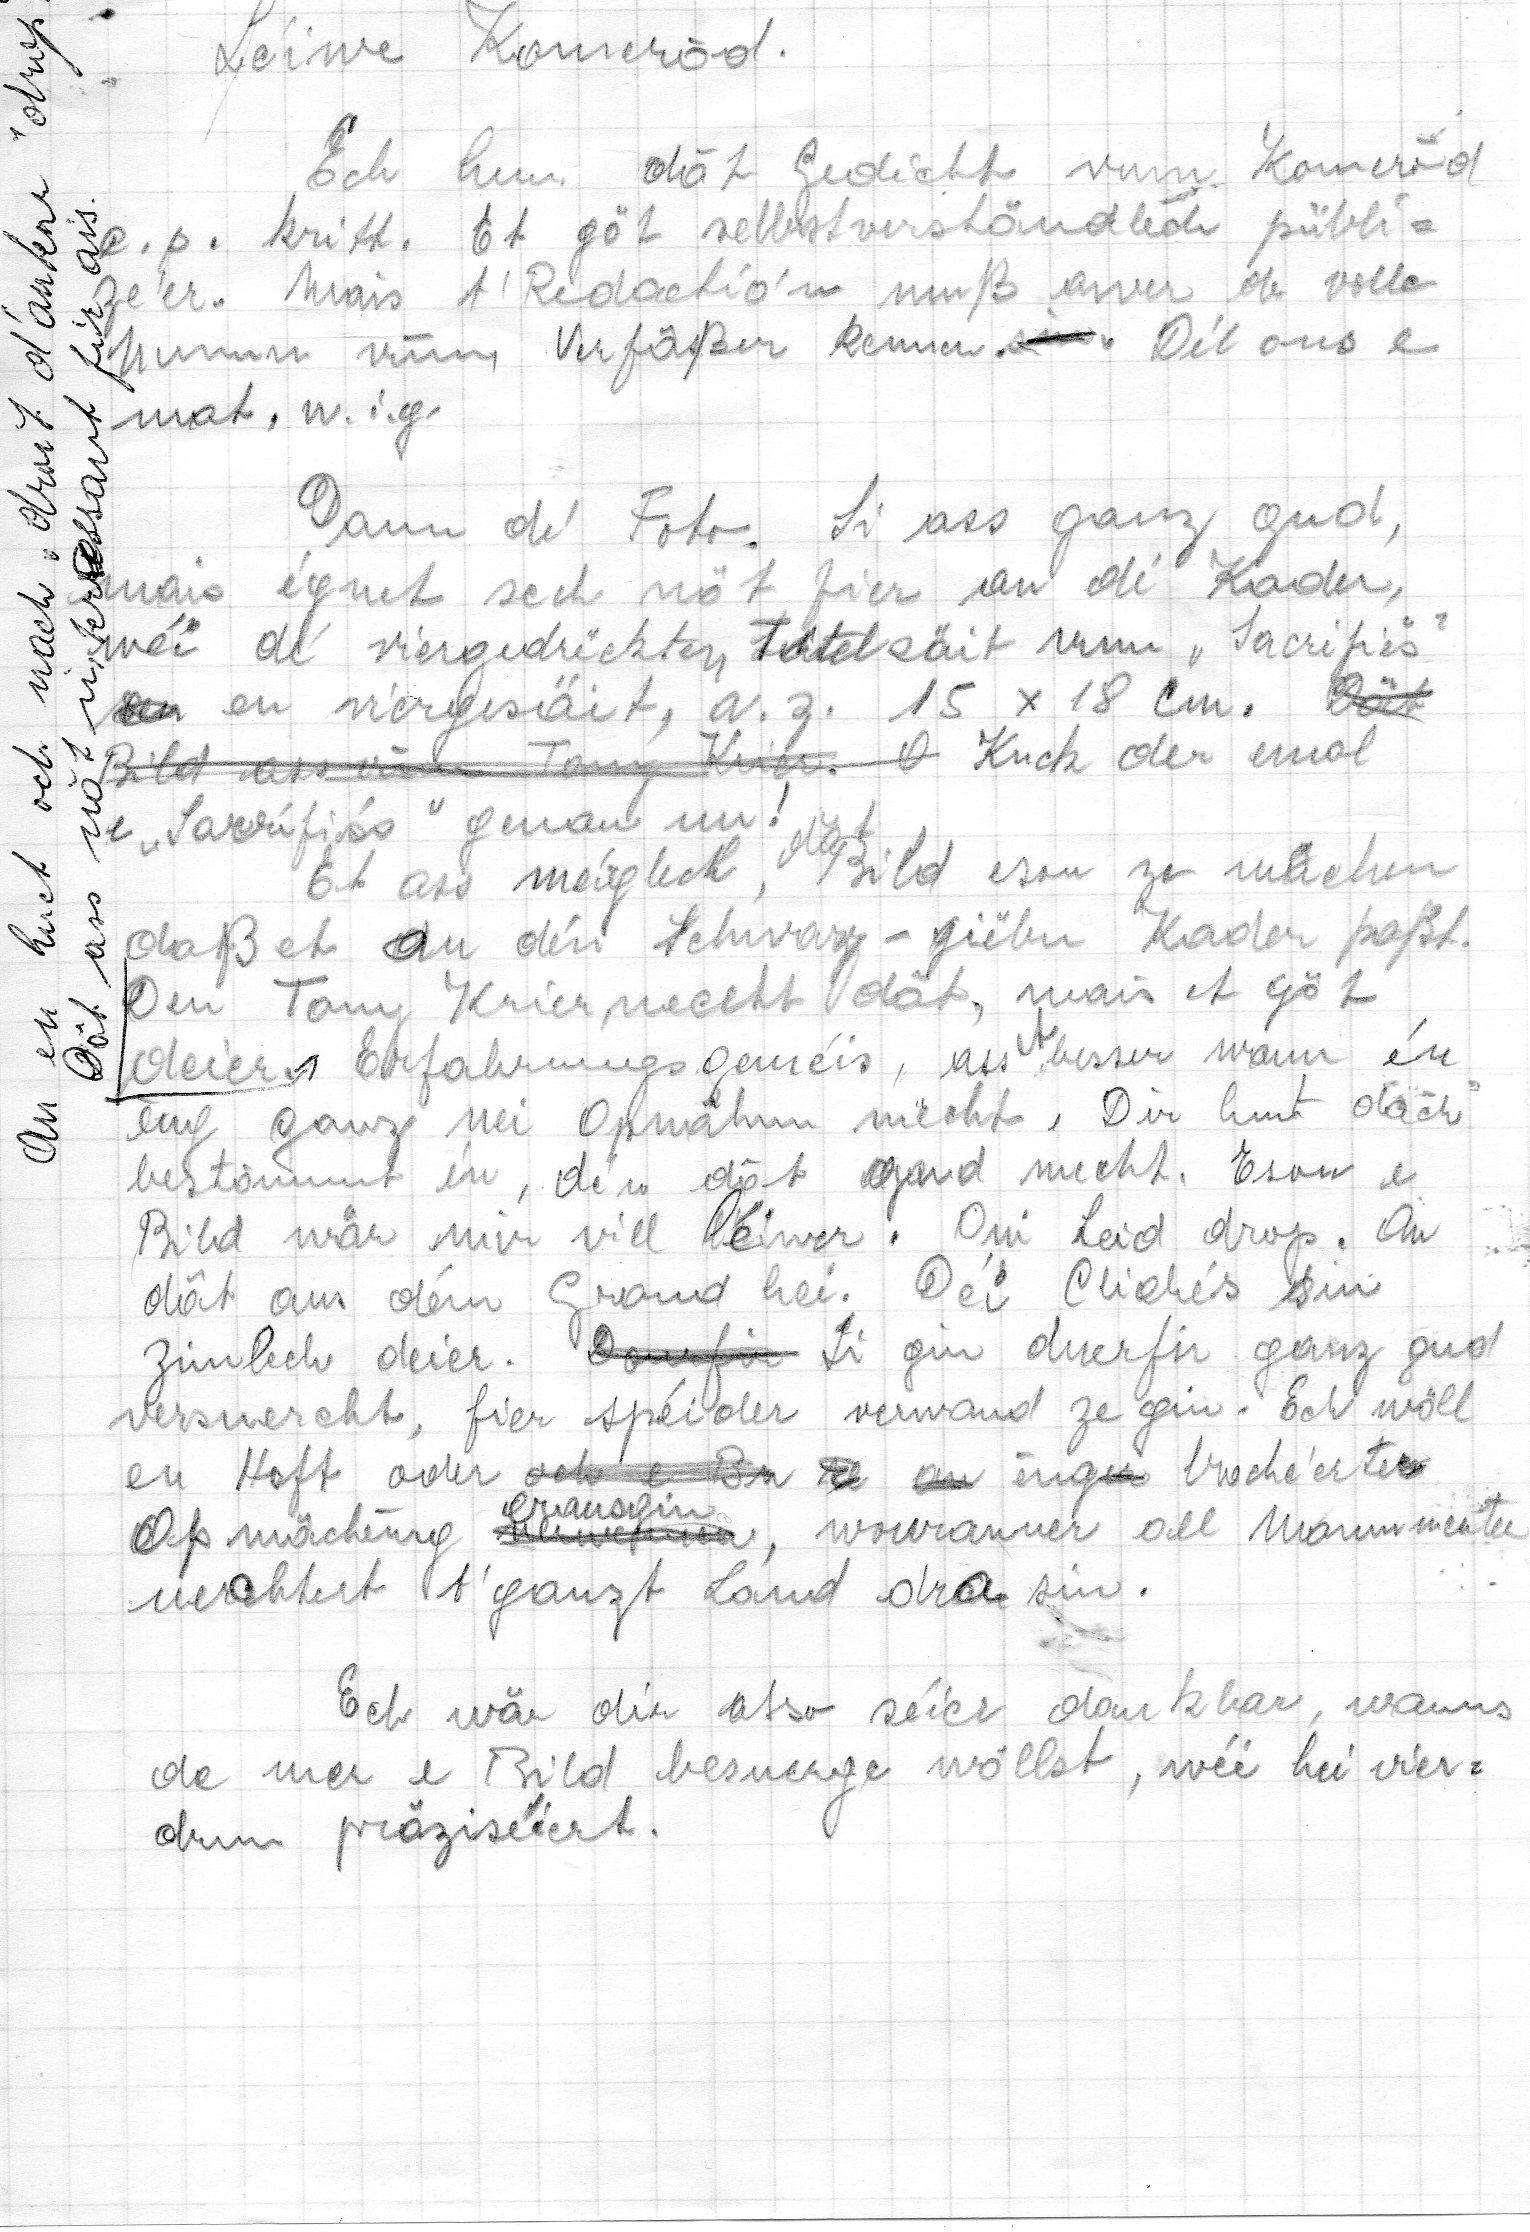 Léiwe Komeröd.
Ech hun dät Gedicht vum Komeröd
e.p. kritt. Et göt selbstverständlech publi=
zéier. Mais t'Redactio'n muß awer de volle
Numm vum Verfäßer kennen. Dél ons e
mat, w.i.g.
Dann dé Foto. Si ass ganz gud,
mais égnet sech nöt fier an dé Kader,
wéi dé viergedréckten Titelsäit vum „Sacrifiés"
en viergesäit, a.z. 15 x 18 cm. Dät
Bild ass vum Tony Krier. Kuck der emol
e „Sacrifiés" genau un!
Et ass méiglech, dät Bild eson ze mächen
daß et an dén Schwarz-giëlen Kader paßt.
Den Tony Krier mecht dät, mais et göt
deier. Erfahrungsgeméis, ass et besser wann én
eng ganz nei Opnähm mécht. Dir hut däch
bestömmt én, dén dät gud mecht. Eson e
Bild wär mir vill léiwer. Oni Leid drop. An
dät aus dém Grond hei. Déi Clichés sin
zimlech deier. Si gin duerfir ganz gud
verwuercht, fier spéider verwand ze gin. Ech wöll
en Heft oder eng brochéerte
Opmächeng erausgin, wouranner all Monumenter
iwerhlert t'ganzt Land dra sin.
Ech wär dir also séier dankbar, wanns
de mer e Bild besuerge wöllst, wéi hei vier=
drun präziséiert.
An en huet och nach „drat d'änken" drop
Dät ass nöt interessant fir ais.